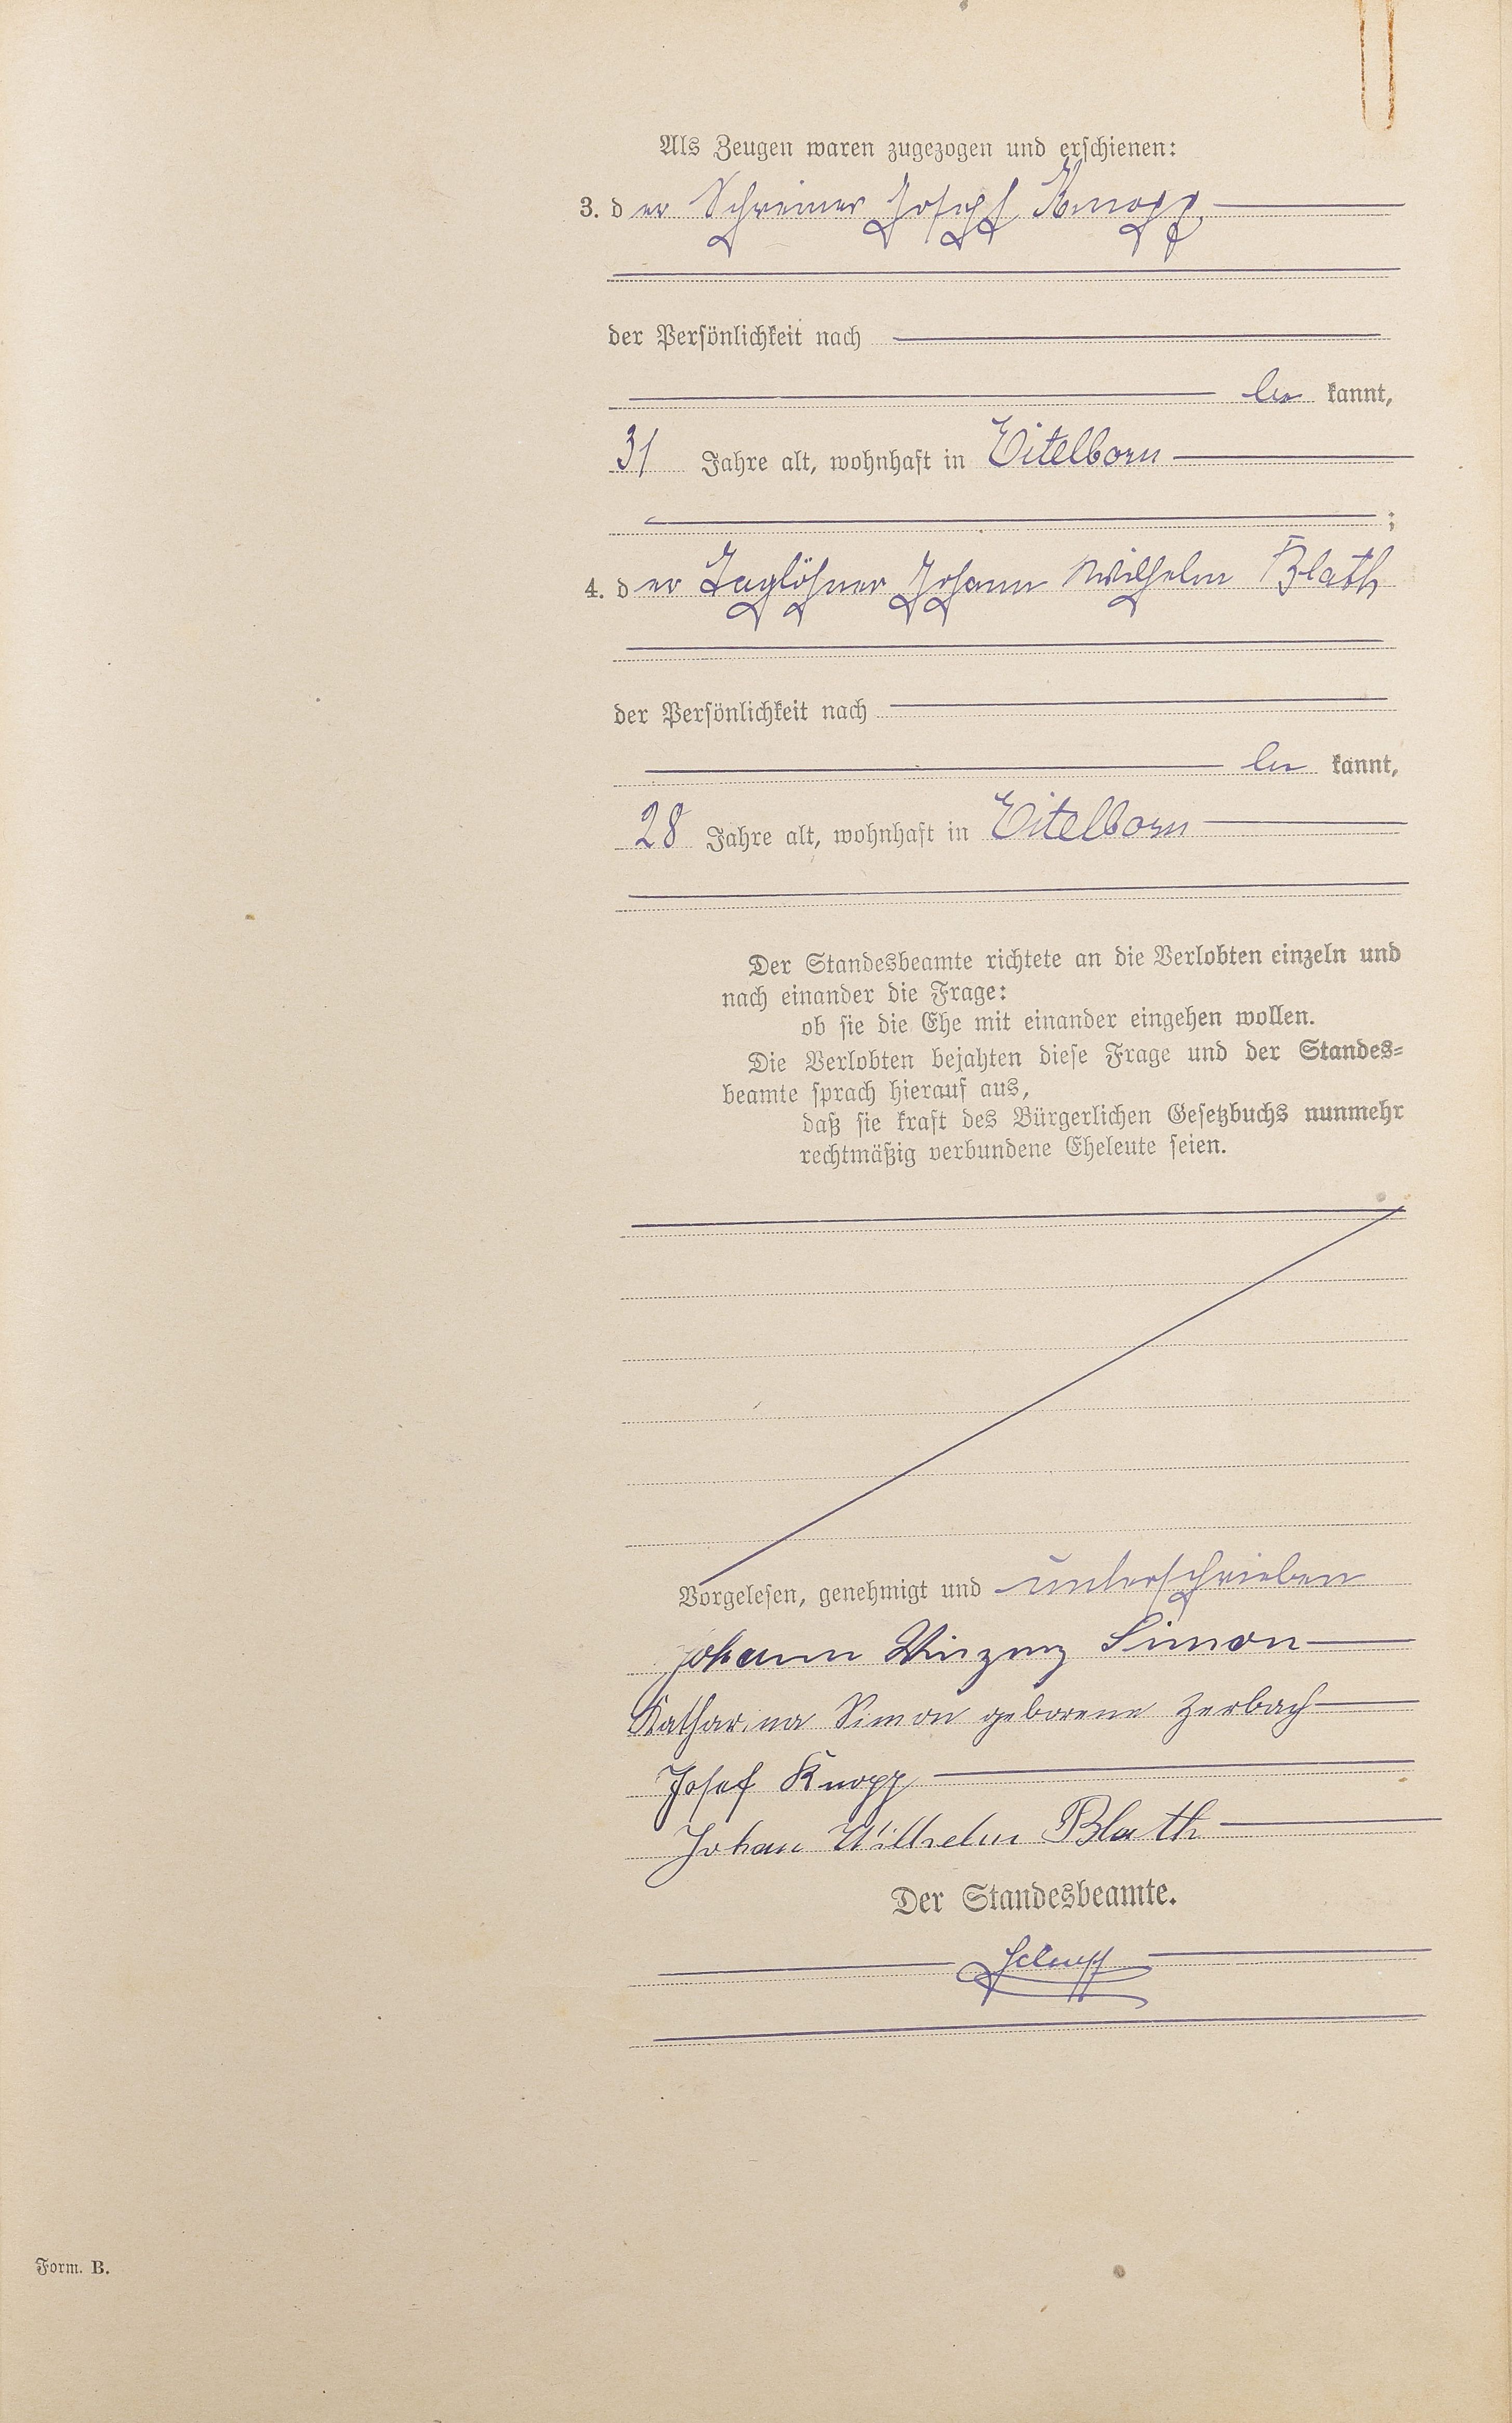 Als Zeugen waren zugezogen und erschienen:
3. der Schreiner Joseph Knopp
der Persönlichkeit nach
be kannt,
31 Jahre alt, wohnhaft in Eitelborn
;
4. der Taglöhner Johann Wilhelm Blath
der Persönlichkeit nach
be kannt,
28 Jahre alt, wohnhaft in Eitelborn
Der Standesbeamte richtete an die Verlobten einzeln und
nach einander die Frage:
ob sie die Ehe mit einander eingehen wollen.
Die Verlobten bejahten diese Frage und der Standes=
beamte sprach hierauf aus,
daß sie kraft des Bürgerlichen Gesetzbuchs nunmehr
rechtmäßig verbundene Eheleute seien.
Vorgelesen, genehmigt und unterschrieben
Johann Vinzenz Simon
Katharina Simon geborene Zerbach
Josef Knopp
Johan Wilhelm Blath
Der Standesbeamte.
Form. B.